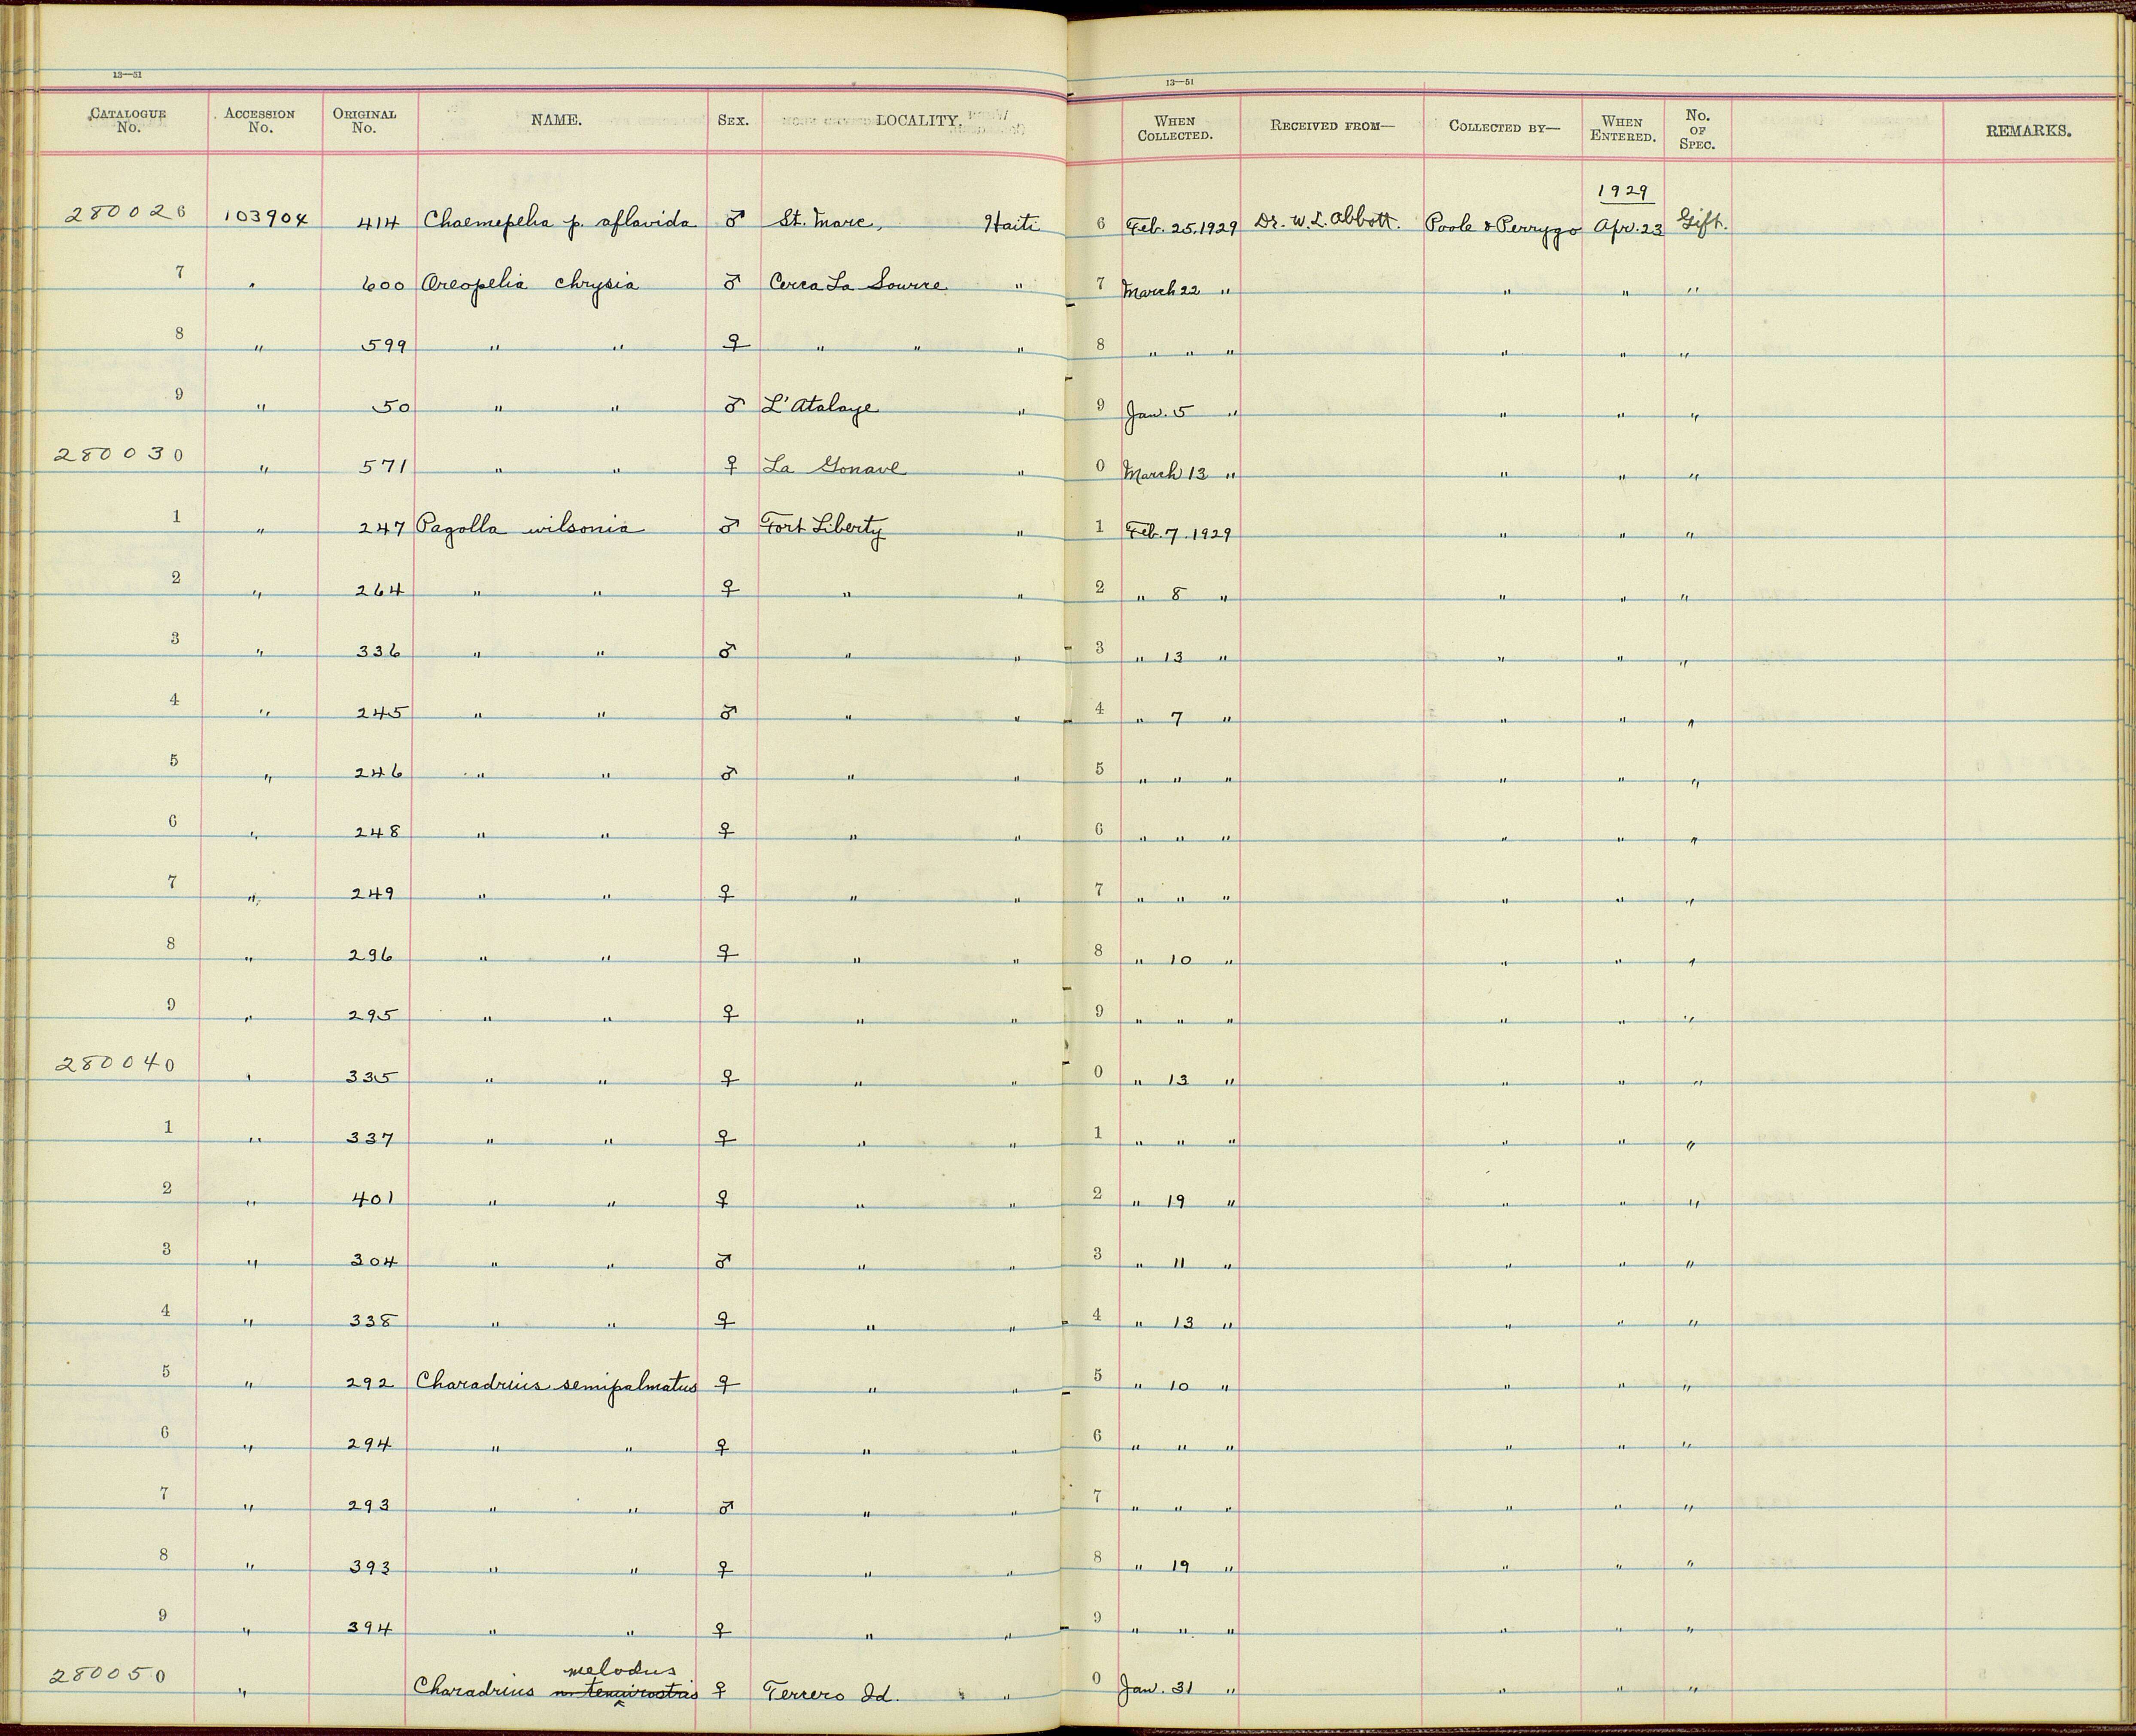 13—51 13—51
CATALOGUE No. ACCESSION No. ORIGINAL No. NAME. SEX. LOCALITY. WHEN COLLECTED. RECEIVED FROM— COLLECTED BY— WHEN ENTERED. No. OF SPEC. REMARKS.
1929
280026 103904 414 Chaemepelia p. aflavida ♂ St. Marc, Haiti 6 Feb. 25, 1929 Dr. W. L. Abbott. Poole & Perrygo Apr. 23 Gift.
7 " 600 Oreopelia chrysia ♂ Cerca La Source " 7 March 22 " " " "
8 " 599 " " ♀ " " " 8 " " " " " "
9 " 50 " " ♂ L'Atalaye " 9 Jan. 5 " " " "
280030 " 571 " " ♀ La Gonave " 0 March 13 " " " "
1 " 247 Pagolla wilsonia ♂ Fort Liberty " 1 Feb. 7. 1929 " " "
2 " 264 " " ♀ " " 2 " 8 " " " "
3 " 336 " " ♂ " " 3 " 13 " " " "
4 " 245 " " ♂ " " 4 " 7 " " " "
5 " 246 " " ♂ " " 5 " " " " " "
6 " 248 " " ♀ " " 6 " " " " " "
7 " 249 " " ♀ " " 7 " " " " " "
8 " 296 " " ♀ " " 8 " 10 " " " "
9 " 295 " " ♀ " " 9 " " " " " "
280040 " 335 " " ♀ " " 0 " 13 " " " "
1 " 337 " " ♀ " " 1 " " " " " "
2 " 401 " " ♀ " " 2 " 19 " " " "
3 " 304 " " ♂ " " 3 " 11 " " " "
4 " 338 " " ♀ " " 4 " 13 " " " "
5 " 292 Charadrius semipalmatus ♀ " " 5 " 10 " " " "
6 " 294 " " ♀ " " 6 " " " " " "
7 " 293 " " ♂ " " 7 " " " " " "
8 " 393 " " ♀ " " 8 " 19 " " " "
9 " 394 " " ♀ " " 9 " " " " " "
melodus
280050 " Charadrius n. tenuirostris ♀ Terrero Id. " 0 Jan. 31 " " " "